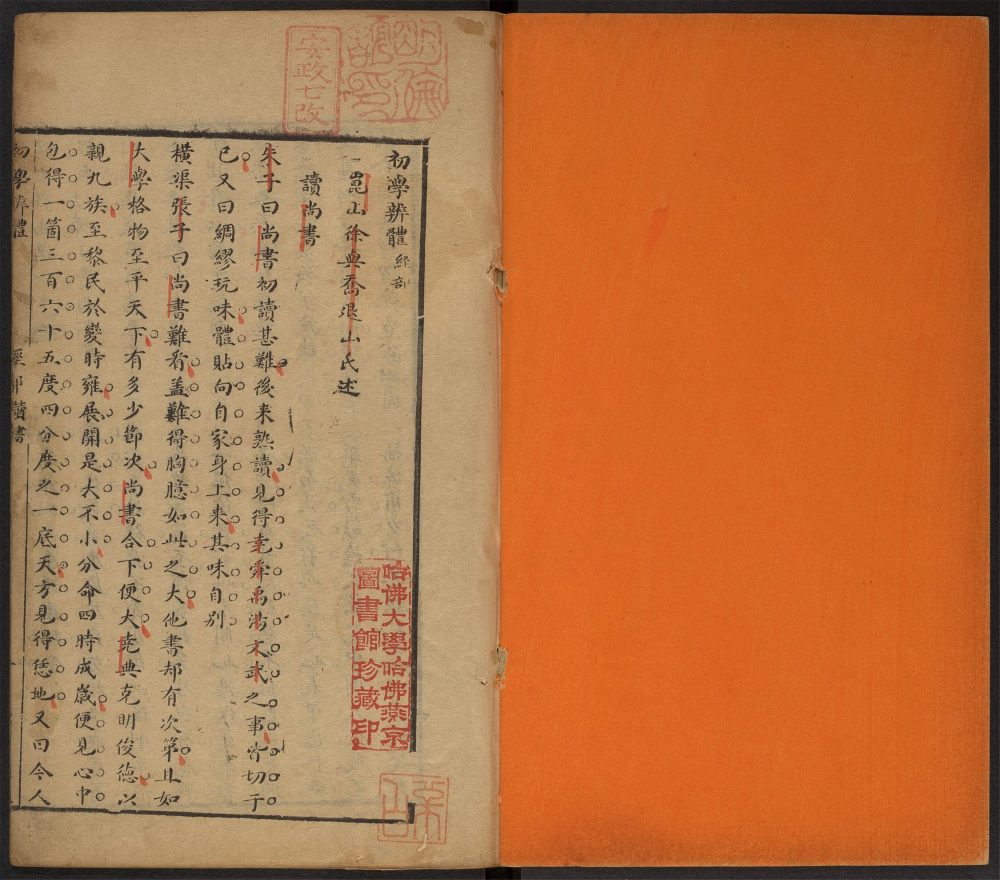 初學辨體 經部
崑山徐與喬退山氏述
讀尚書
朱子曰尚書初讀甚難後来熟讀見得堯舜禹湯文武之事皆切于
已又曰綢繆玩味體貼向自家身上来其味自別
橫渠張子曰尚書難看盖難得胸臆如此之大他書却有次第且如
大學格物至平天下有多少節次尚書合下便大堯典克明俊德以
親九族至黎民於變時雍展開是大不小分命四時成歲便見心中
包得一箇三百六十五度四分度之一底天方見得恁地又曰今人
初學辨體 經部讀書
安政七改
哈佛大學哈佛燕京
圖書館珍藏印